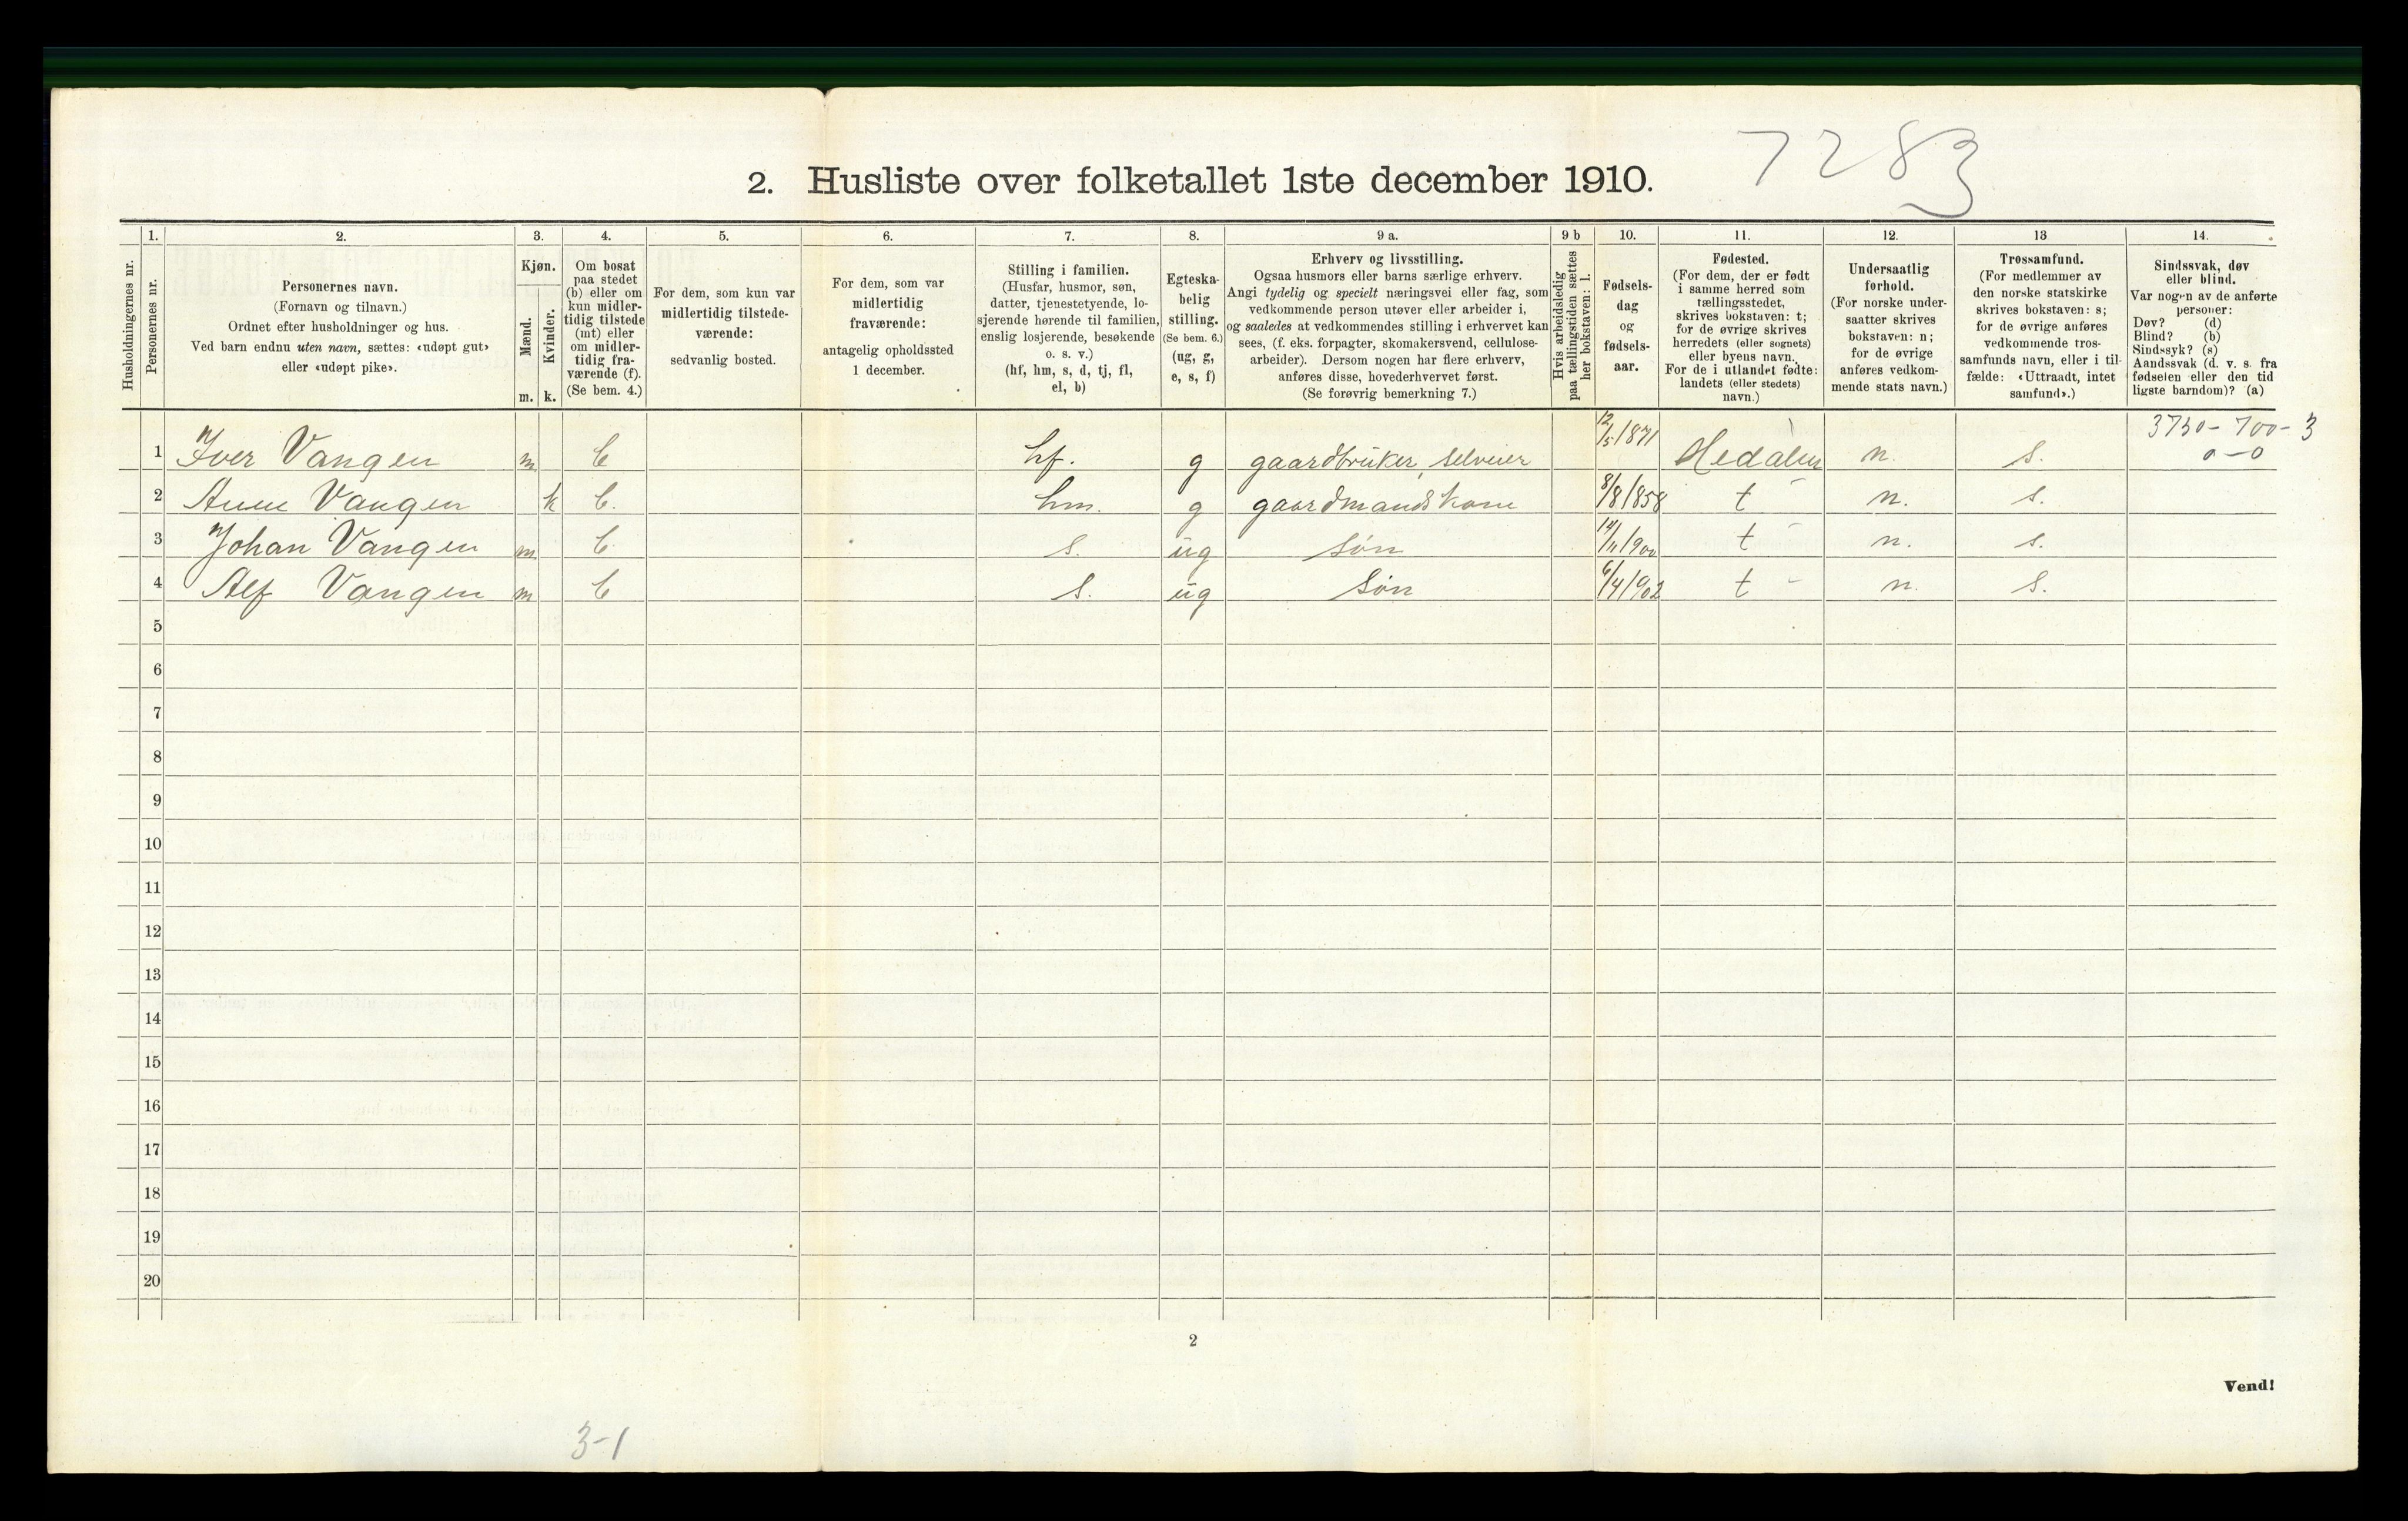 7283
2. Husliste over folketallet 1ste december 1910.
Husholdningernes nr.
1.
Personernes nr.
2.
Personernes navn.
(Fornavn og tilnavn.)
Ordnet efter husholdninger og hus.
Ved barn endnu uten navn, sættes: «udøpt gut»
eller «udøpt pike».
3.
Kjøn.
Mænd.
Kvinder.
m. k.
4.
Om bosat
paa stedet
(b) eller om
kun midler-
tidig tilstede
(mt) eller
om midler-
tidig fra-
værende (f).
(Se bem. 4.)
5.
For dem, som kun var
midlertidig tilstede-
værende:
sedvanlig bosted.
6.
For dem, som var
midlertidig
fraværende:
antagelig opholdssted
1 december.
7.
Stilling i familien.
(Husfar, husmor, søn,
datter, tjenestetyende, lo-
sjerende hørende til familien,
enslig losjerende, besøkende
o. s. v.)
(hf, hm, s, d, tj, fl,
el, b)
8.
Egteska-
belig
stilling.
(Se bem. 6.)
(ug, g,
e, s, f)
9 a.
Erhverv og livsstilling.
Ogsaa husmors eller barns særlige erhverv.
Angi tydelig og specielt næringsvei eller fag, som
vedkommende person utøver eller arbeider i,
og saaledes at vedkommendes stilling i erhvervet kan
sees, (f. eks. forpagter, skomakersvend, cellulose-
arbeider). Dersom nogen har flere erhverv,
anføres disse, hovederhvervet først.
(Se forøvrig bemerkning 7.)
9 b
Hvis arbeidsledig
paa tællingstiden sættes
her bokstaven: l.
10.
Fødsels-
dag
og
fødsels-
aar.
11.
Fødested.
(For dem, der er født
i samme herred som
tællingsstedet,
skrives bokstaven: t;
for de øvrige skrives
herredets (eller sognets)
eller byens navn.
For de i utlandet fødte:
landets (eller stedets)
navn.)
12.
Undersaatlig
forhold.
(For norske under-
saatter skrives
bokstaven: n;
for de øvrige
anføres vedkom-
mende stats navn.)
13
Trossamfund.
(For medlemmer av
den norske statskirke
skrives bokstaven: s;
for de øvrige anføres
vedkommende tros-
samfunds navn, eller i til-
fælde: «Uttraadt, intet
samfund».)
14.
Sindssvak, døv
eller blind.
Var nogen av de anførte
personer:
Døv? (d)
Blind? (b)
Sindssyk? (s)
Aandssvak (d. v. s. fra
fødselen eller den tid
ligste barndom)? (a)
3730 - 700 - 3
0 - 0
1 Iver Vangen m b hf. g gaardbruker, selveier 12/5 1871 Hedalen n. s.
2 Anne Vangen k b. hm. g gaardmandskone 8/8 1858 t n. s.
3 Johan Vangen m b s. ug søn 14/11 900 t n. s.
4 Alf Vangen m b s. ug søn 6/4 902 t n. s.
5
6
7
8
9
10
11
12
13
14
15
16
17
18
19
20
2
Vend!
3-1